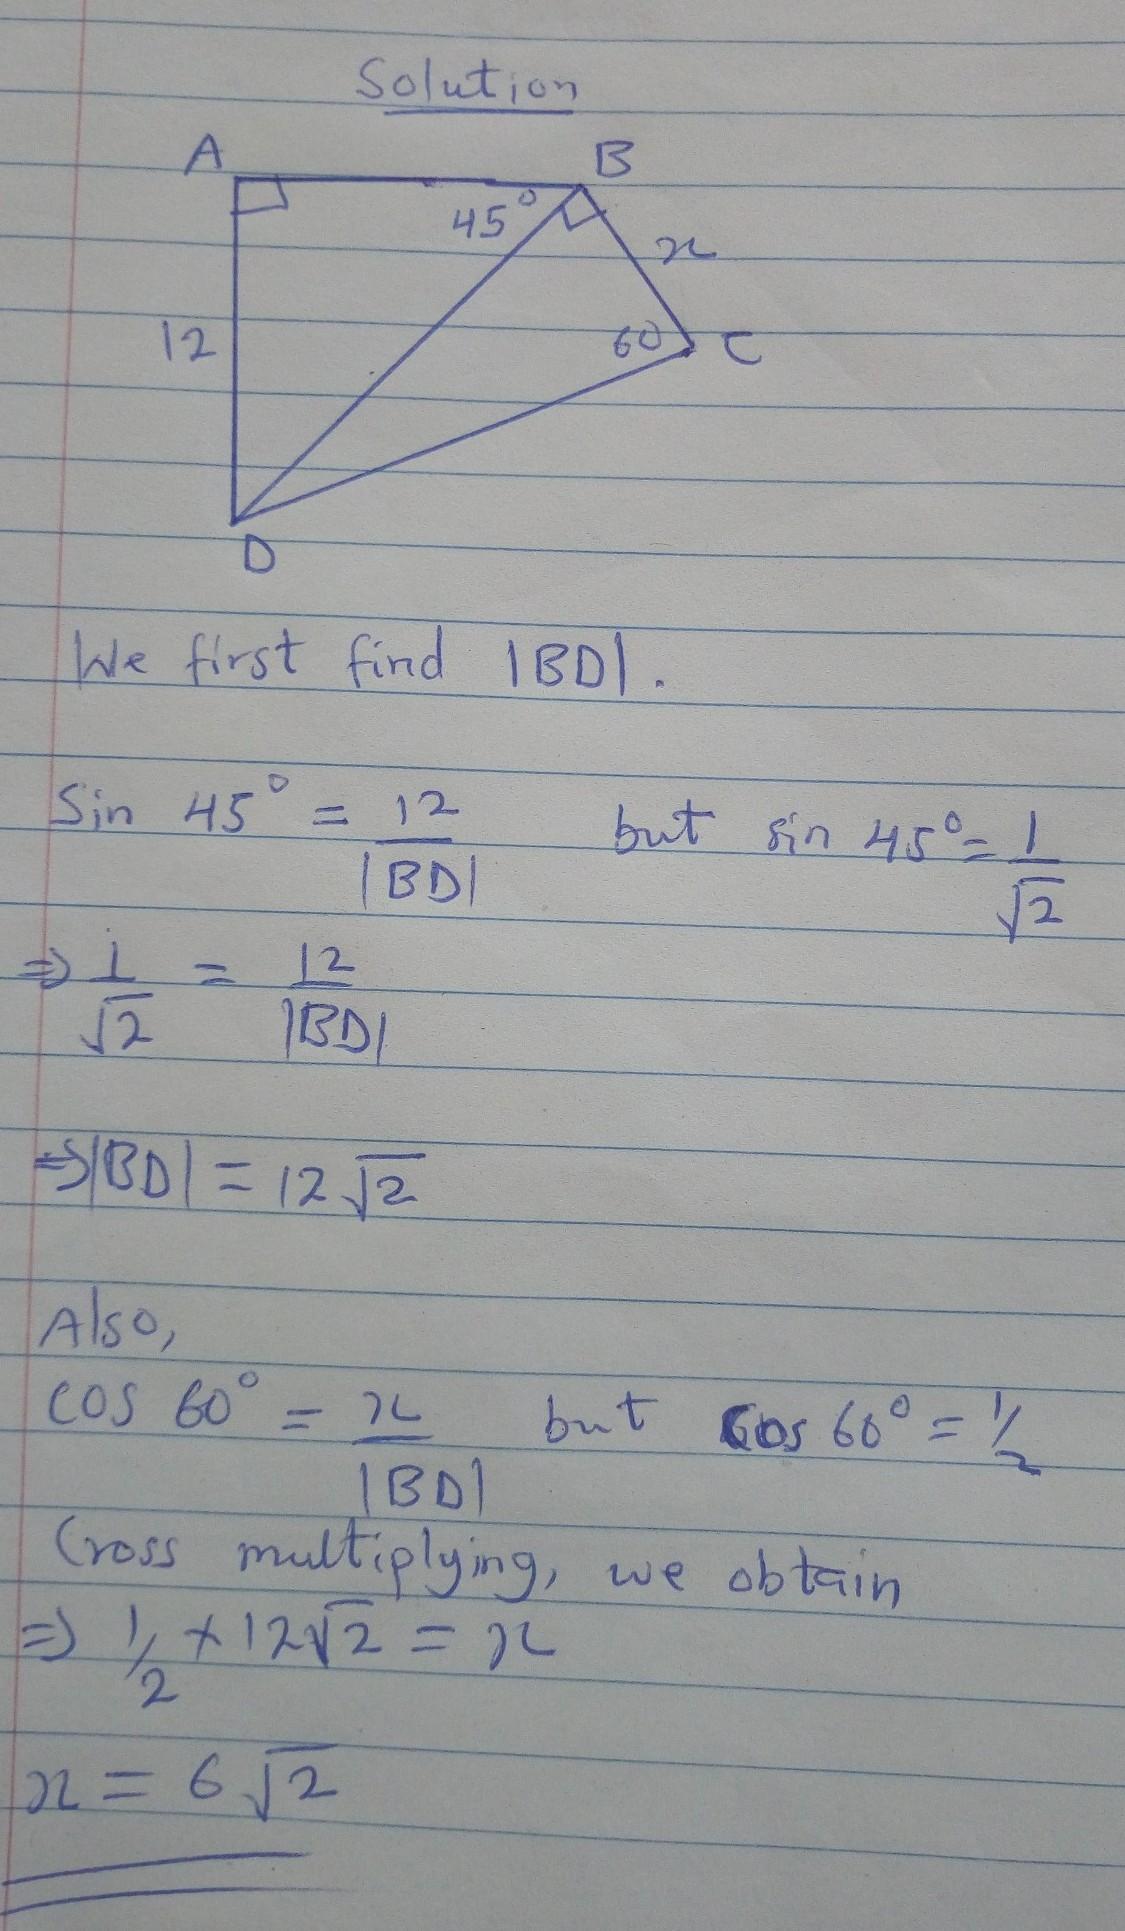 Solution
A B
45°
x
12
60 C
D
We first find |BD|.
Sin 45° = 12/|BD| but sin 45° = 1/√2
⇒ 1/√2 = 12/|BD|
⇒ |BD| = 12√2
Also,
cos 60° = x/|BD| but Cos 60° = 1/2
Cross multiplying, we obtain
⇒ 1/2 × 12√2 = x
x = 6√2